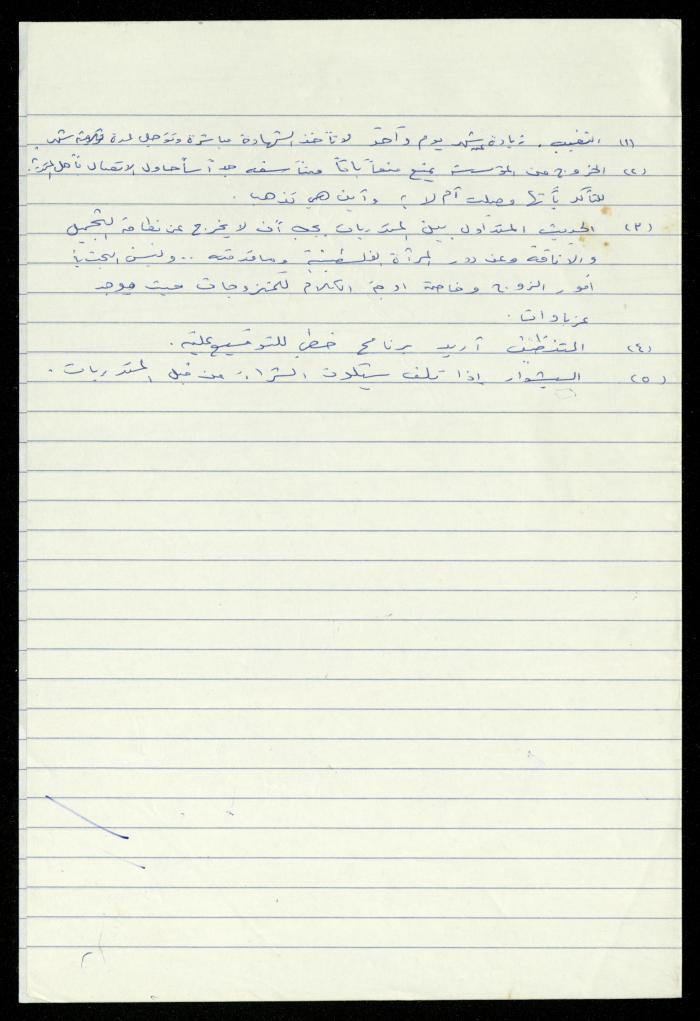 (١) التغيب . زيادة عن شهر يوم واحد لا تأخذ الشهادة مباشرة وتؤجل لمدة شهر
(٢) الخروج من المؤسسة يمنع منعاً باتاً سأحاول الاتصال بأهل
للتأكد بأنها وصلت أم لا ؟ وأين هي تذهب .
(٣) الحديث المتداول بين المتدربات يجب أن لا يخرج عن نظافة التجميل
والاناقة وعن دور المرأة الفلسطينية وما قدمته .. وليس البحث بأ
أمور الزوج وخاصة الكلام للمتزوجات حيث يوجد
عزباوات .
(٤) التنظيف أريد برنامج خطي للتوقيع عليه .
(٥) السيشوار إذا تلف سيكون الشراء من قبل المتدربات .